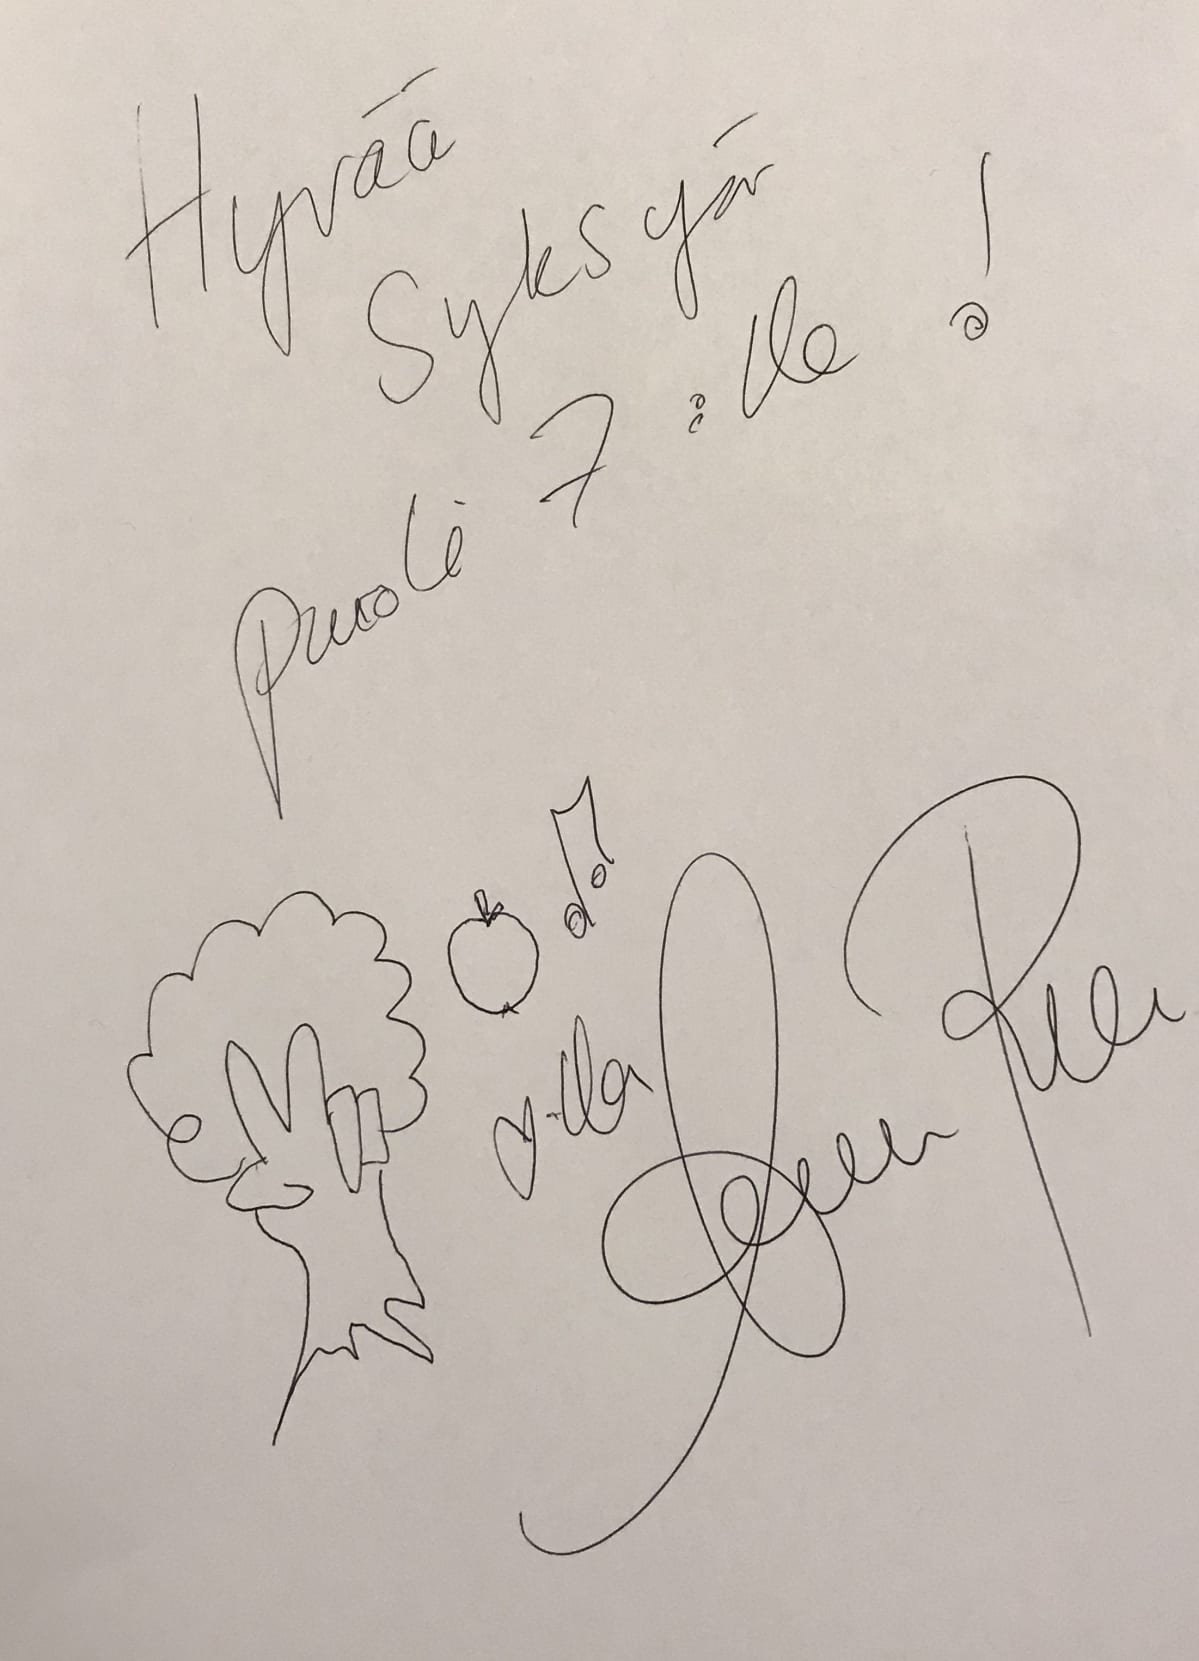 Hyvää
Syksyä
puoli 7:lle!
♡:lla